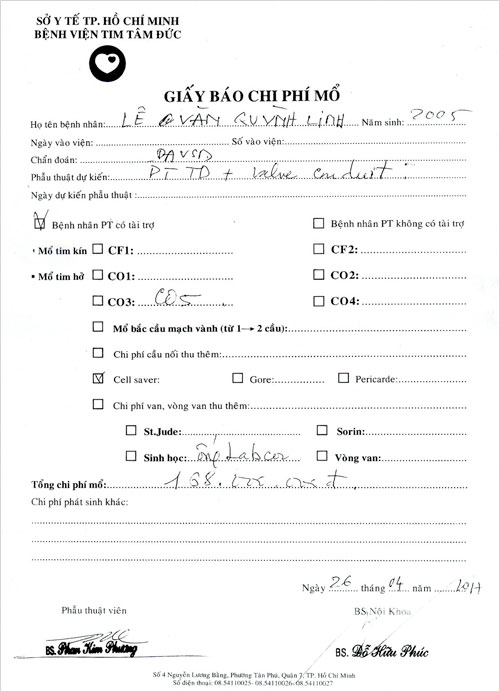 SỞ Y TẾ TP. HỒ CHÍ MINH
BỆNH VIỆN TIM TÂM ĐỨC
GIẤY BÁO CHI PHÍ MỔ
Họ tên bệnh nhân: LÊ VĂN QUỲNH LINH Năm sinh: 2005
Ngày vào viện: Số vào viện:
Chẩn đoán: PAVSD
Phẫu thuật dự kiến: PT TD + valve conduit
Ngày dự kiến phẫu thuật :
Bệnh nhân PT có tài trợ Bệnh nhân PT không có tài trợ
Mổ tim kín CF1: CF2:
Mổ tim hở CO1: CO2:
CO3: CO5 CO4:
Mổ bắc cầu mạch vành (từ 1→ 2 cầu):
Chi phí cầu nối thu thêm:
Cell saver: Gore: Pericarde:
Chi phí van, vòng van thu thêm:
St.Jude: Sorin:
Sinh học: ống Labcor Vòng van:
Tổng chi phí mổ: 168. đ
Chi phí phát sinh khác:
Ngày 26 tháng 04 năm 2011
Phẫu thuật viên BS Nội Khoa
BS. Phan Kim Phương BS. Đỗ Hữu Phúc
Số 4 Nguyễn Lương Bằng, Phường Tân Phú, Quận 7, TP. Hồ Chí Minh
Số điện thoại: 08.54110025- 08.54110026- 08.54110027